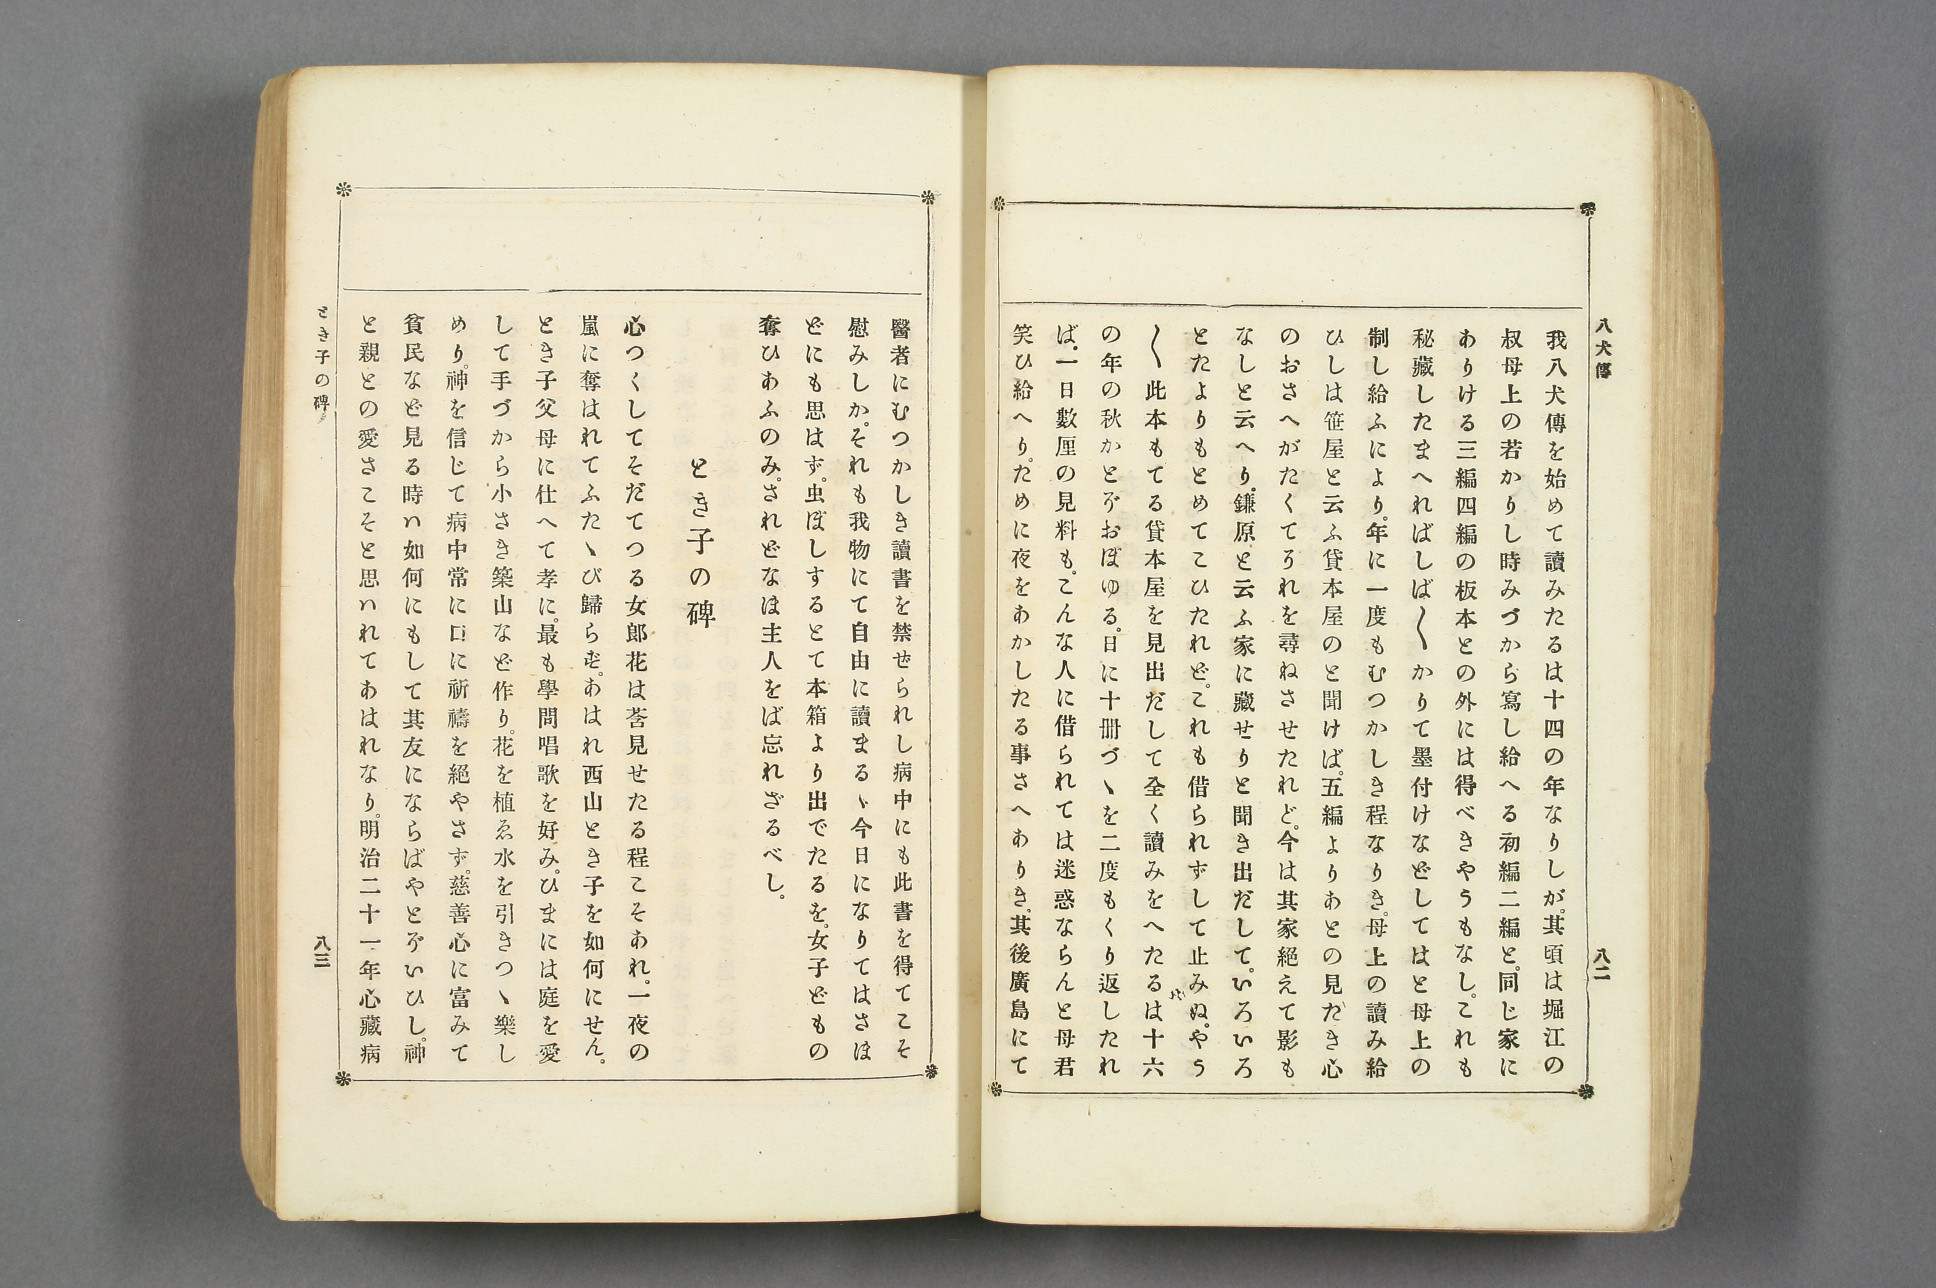 八犬傳
八二
我八犬傳を始めて讀みたるは十四の年なりしが。其頃は堀江の
叔母上の若かりし時みづから寫し給へる初編二編と。同じ家に
ありける三編四編の板本との外には得べきやうもなし。これも
秘藏したまへればしば〱かりて墨付けなどしてはと母上の
制し給ふにより。年に一度もむつかしき程なりき。母上の讀み給
ひしは笹屋と云ふ貸本屋のと聞けば。五編よりあとの見たき心
のおさへがたくてうれを尋ねさせたれど。今は其家絶えて影も
なしと云へり。鎌原と云ふ家に藏せりと聞き出だして。いろいろ
とたよりもとめてこひたれど。これも借られずして止みぬ。やう
〱此本もてる貸本屋を見出だして全く讀みをへたるは十六
の年の秋かとぞおぼゆる。日に十冊づゝを二度もくり返したれ
ば。一日數厘の見料も。こんな人に借られては迷惑ならんと母君
笑ひ給へり。ために夜をあかしたる事さへありき。其後廣島にて
醫者にむつかしき讀書を禁ぜられし病中にも此書を得てこそ
慰みしか。それも我物にて自由に讀まるゝ今日になりてはさほ
どにも思はず。虫ぼしするとて本箱より出でたるを。女子どもの
奪ひあふのみ。されどなほ主人をば忘れざるべし。
とき子の碑
心つくしてそだてつる女郎花は莟見せたる程こそあれ。一夜の
嵐に奪はれてふたゝび歸らず。あはれ西山とき子を如何にせん。
とき子父母に仕へて孝に。最も學問唱歌を好み。ひまには庭を愛
して手づから小さき築山など作り。花を植ゑ水を引きつゝ樂し
めり。神を信じて病中常に口に祈禱を絶やさず。慈善心に富みて
貧民など見る時ハ如何にもして其友にならばやとぞいひし。神
と親との愛さこそと思ハれてあはれなり。明治二十一年心藏病
とき子の碑
八三